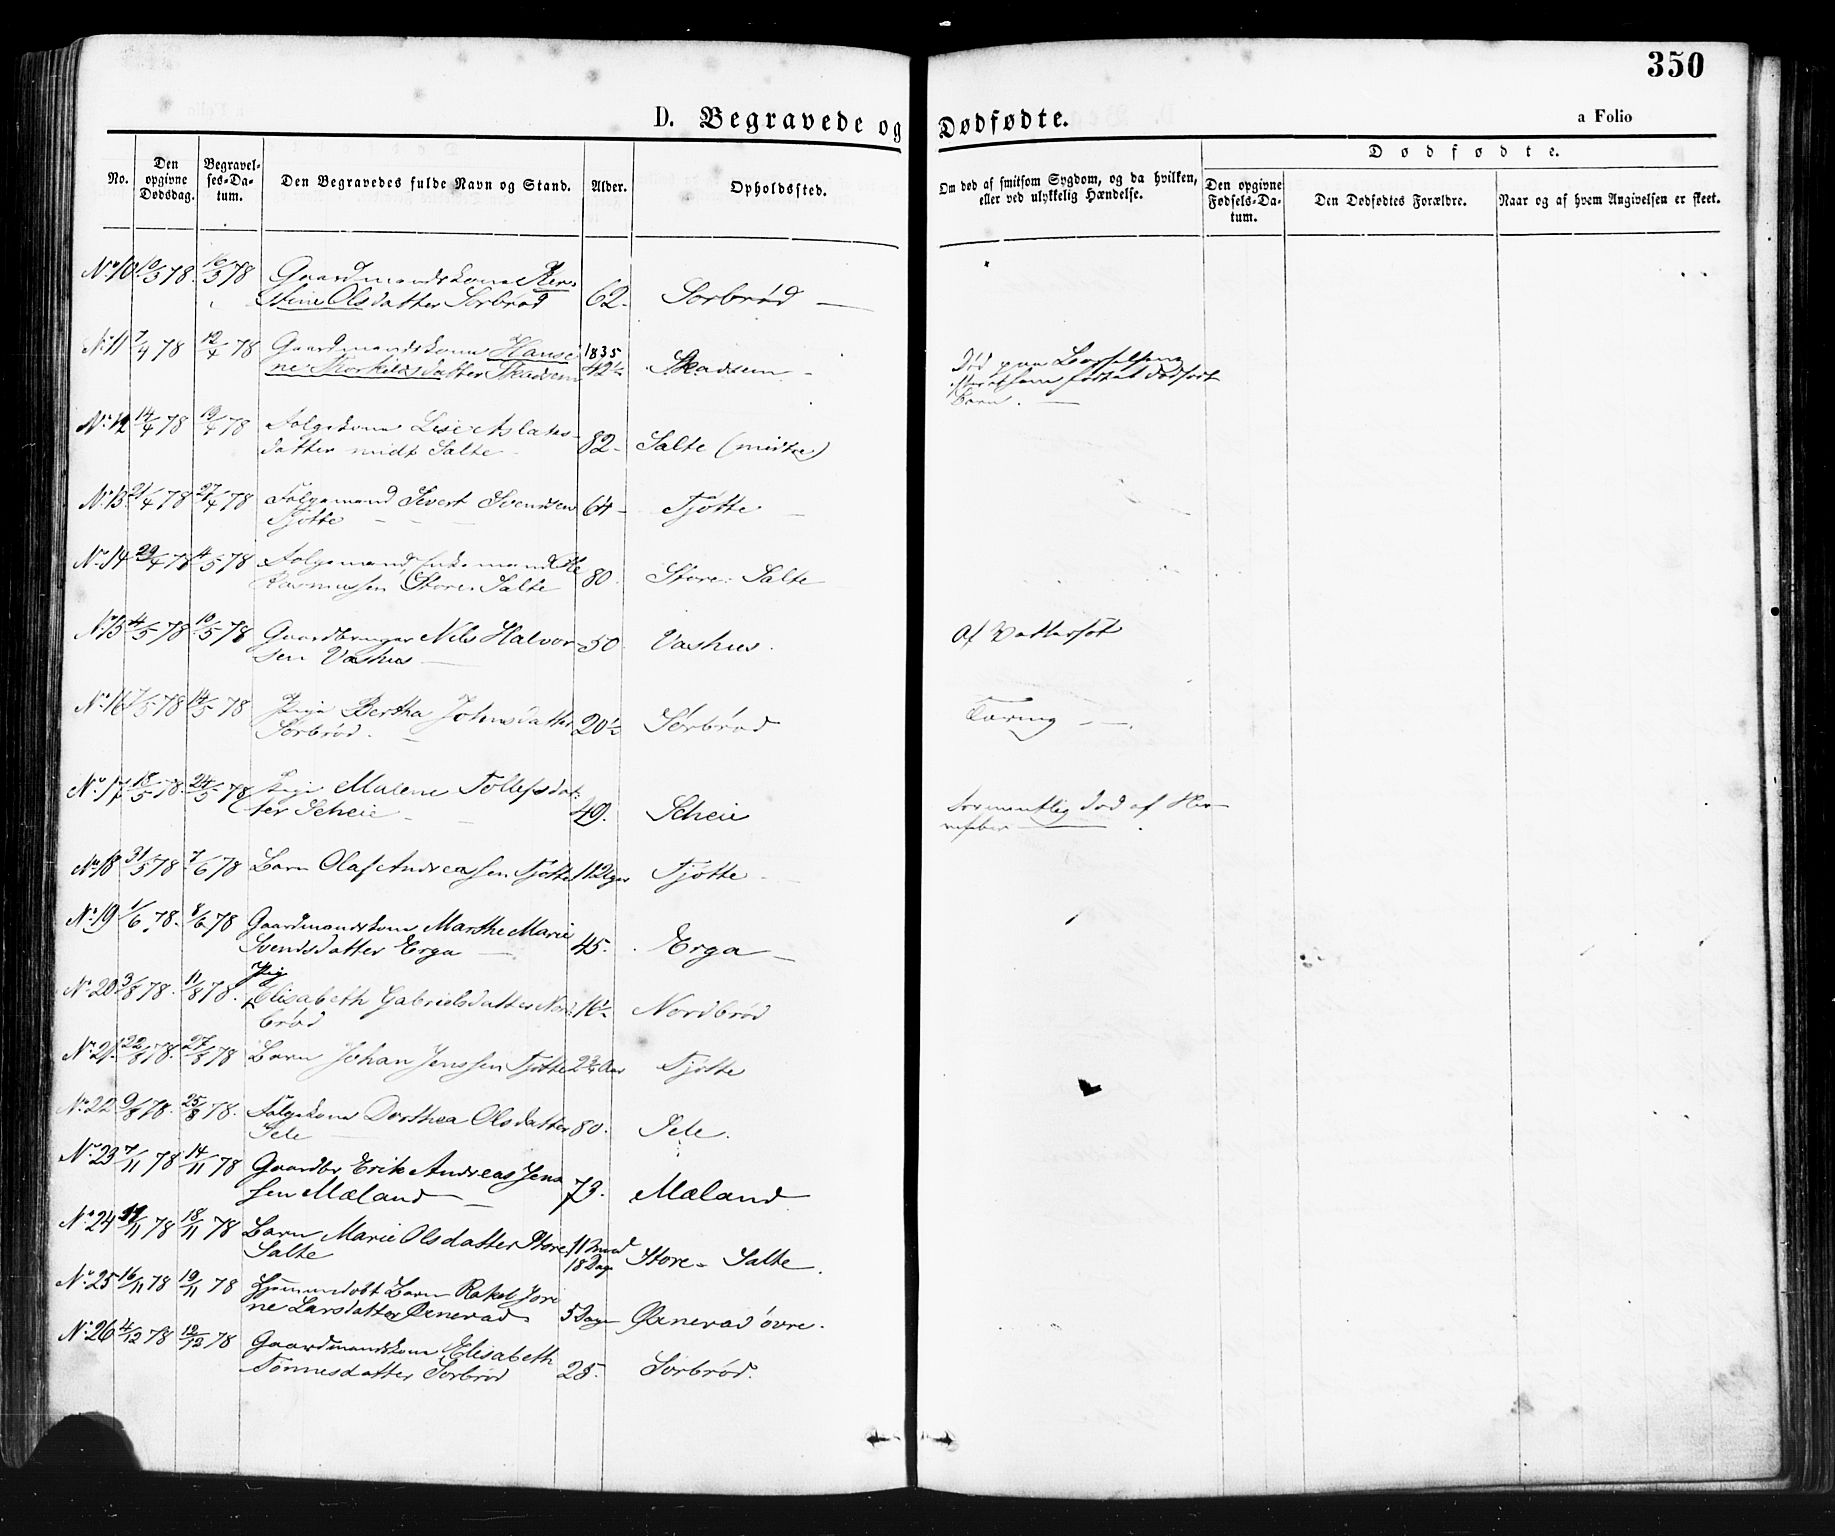 350
D. Begravede og Dødfødte.
a Folio
No.
Den opgivne Dødsdag.
Begravelses-Datum.
Den Begravedes fulde Navn og Stand.
Alder.
Opholdssted.
Om død af smitsom Sygdom, og da hvilken, eller ved ulykkelig Hændelse.
Dødfødte.
Den opgivne Fødsels-Datum.
Den Dødfødtes Forældre.
Naar og af hvem Angivelsen er skeet.
No 10 10/3 78. 16/3 78 Gaardmandskone Kers- 62- Sorbrød —
stine Olsdatter Sorbrød
No 11 7/4 78 12/4 78 Gaardmandskone Hansi- 1835 42½ Skadsem - Død paa Barselseng
ne Thorkildsdatter Skadsem
født Dødfødt
Barn. —
No 12 14/4 78 19/4 78 Folgekone Lise Aslaks- 82- Salte (midtre)
datter midt Salte -
No 13 21/4 78 27/4 78 Folgemand Sivert Svendsen 64- Tjøtte -
Tjøtte - - -
No 14 29/4 78 4/5 78 Folgemand, Enkemand Ole 80. Store Salte
Rasmussen Store Salte
No 15 4/5 78 10/5 78 Gaardbruger Nils Halvor- 50. Vashus. Af Vattersot
sen Vashus —
No 16 7/5 78 14/5 78 Pige Bertha Johnsdatter 20½ Sørbrød Tæring — —.
Sørbrød. —
No 17 18/5 78. 24/5 78 Pige Malene Tollefsdat- 49. Scheie formentlig død af Ner-
ter Scheie - - vefeber —
No 18 31/5 78. 7/6 78 Barn Olaf Andreassen Tjøtte 11 Uger Tjøtte -
No 19 1/6 78. 8/6 78 Gaardmandskone Marthe Marie 45. Erga —
Svendsdatter Erga —
No 20 3/8 78. 11/8 78. Pig Elisabeth Gabrielsdatter Nord- 16½ Nordbrød
brød
No 21. 22/8 78. 27/8 78 Barn Johan Jenssen Tjøtte 2¾ Aar Tjøtte
No 22 9/8 78. 25/8 78. Folgekone Dorthea Olsdatter 80. Sele.
Sele —
No 23 7/11 78 14/11 78 Gaardbr Erik Andreas Jens- 73. Mæland
sen Mæland —
No 24 /11 78 18/11 78 Barn Marie Olsdatter Store 11 Mnd 18 Dage Store- Salte.
Salte
No 25 16/11 78 19/11 78 Hjemmedøbt Barn Rakel Jore- 5 Dage Øxnevad øvre.
ne Larsdatter Øxnevad
No 26 4/12 78 12/12 78 Gaardmandskone Elisabeth 25. Sorbrød.
Tønnesdatter Sorbrød